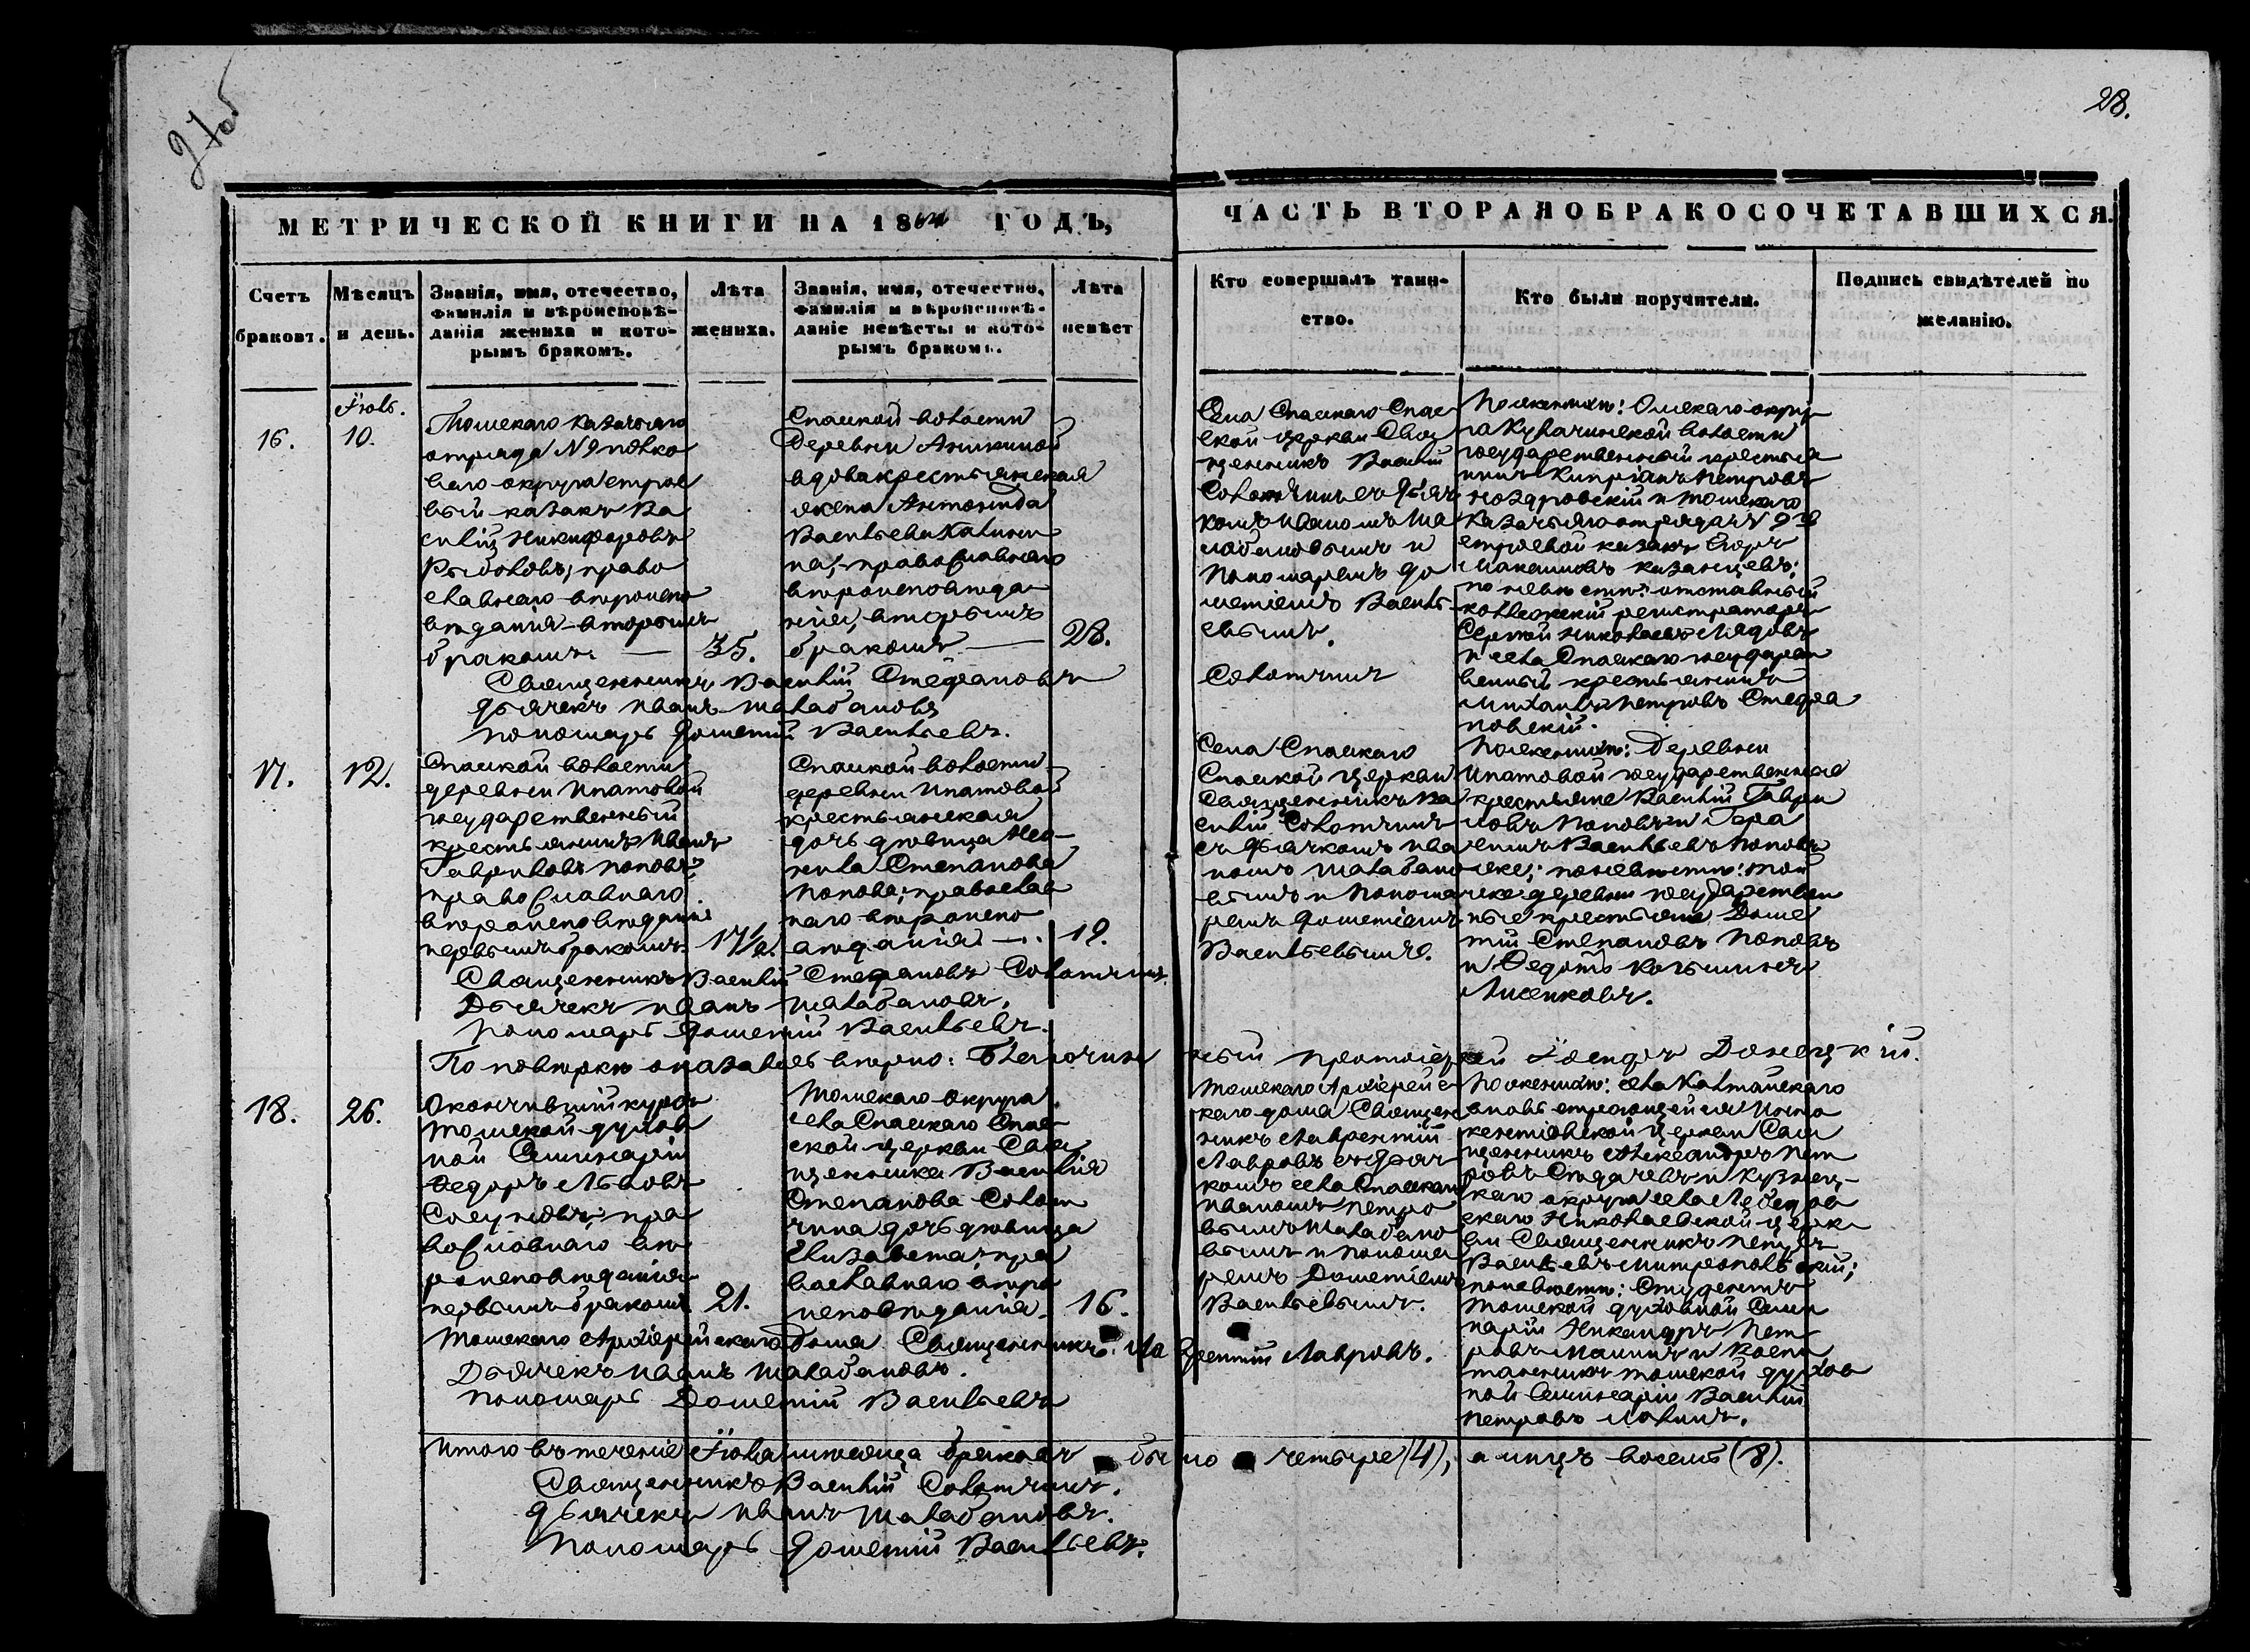 27об
28.
МЕТРИЧЕСКОЙ КНИГИ НА 18 ГОДЪ,
ЧАСТЬ ВТОРАЯ О БРАКОСОЧЕТАВШИХСЯ.
Счетъ браковъ.
Мѣсяцъ и день.
Званія, имя, отечество,
фамилія и вѣроисповѣ-
данія жениха и кото-
рымъ бракомъ.
Лѣта
жениха.
Званія, имя, отечество,
фамилія и вѣроисповѣ-
даніе невѣсты и кото-
рымъ бракомъ.
Лѣта
невѣст
Кто совершалъ таин-
ство.
Кто были поручители.
Подпись свидѣтелей по
желанію.
16.
Іюль.
10.
Томскаго казачьяго
отряда N 9 полко
ваго округа строе
вый казакъ Ва
силій Никифоровъ
Рыболовъ, право
славнаго вѣроиспо
вѣданія вторымъ
бракомъ. —
35.
Спаской волости
деревни Аникиной
вдова крестьянская
жена Антонида
Васильева Калинки
на, православнаго
вѣроисповѣда
нія, вторымъ
бракомъ —
28.
Села Спаскаго Спас
ской церкви Свя
щенникъ Василій
Сололчинъ съ Дьяч
комъ Иваномъ Ша
лабановымъ и
Пономаремъ До
метіемъ Василь
евымъ.
Сололчинъ
По женихѣ: Омскаго окру
га Кулачинской волости
государственный крестья
нинъ Кипріянъ Петровъ
и Томскаго
казачьяго отряда N 9го
строевой казакъ Егоръ
Максимовъ Казанцевъ;
по невѣстѣ: отставный
коллежскій регистраторъ
Сергей Николаевъ Лядовъ
и села Спаскаго государст
венный крестьянинъ
Михаилъ Петровъ Стефа
новскій.
Священникъ Василій Стефановъ
Дьячекъ Иванъ Шалабановъ
Пономарь Дометій Васильевъ.
17.
12.
Спаской волости
деревни Ипатовой
государственный
крестьянинъ Иванъ
Гавриловъ Поповъ,
православнаго
вѣроисповѣданія
первымъ бракомъ.
17 1/2.
Спаской волости
деревни Ипатовой
крестьянская
дочь дѣвица Нео
нила Степанова
Попова; православ
наго вѣроиспо
вѣданія —
19.
Села Спаскаго
Спаской церкви
Священникъ Ва
силій Сололчинъ
съ Дьячкомъ Ива
номъ Шалабано
вымъ и Понома
ремъ Дометіемъ
Васильевымъ.
По женихѣ: Деревни
Ипатовой государственные
крестьяне Василій Гаври
ловъ Поповъ и Гера
симъ Васильевъ Поповъ
же; по невѣстѣ: той
же деревни государствен
ные крестьяне Доме
тій Степановъ Поповъ
и Ѳедотъ Козьминъ
Лисенковъ.
Священникъ Василій Стефановъ Сололчинъ.
Дьячекъ Иванъ Шалабановъ.
Пономарь Дометій Васильевъ.
По повѣркѣ оказалось вѣрно: Благочинный протоіерей Іосифъ Донецкій.
18.
26.
Окончившій курсъ
Томской духов
ной Семинаріи
Ѳедоръ Львовъ
Сосуновъ, пра
вославнаго вѣ
роисповѣданія
первымъ бракомъ
21.
Томскаго округа
села Спаскаго Спас
ской церкви Свя
щенника Василія
Степанова Сололч
чина дочь дѣвица
Елизавета, пра
вославнаго вѣро
исповѣданія
16.
Томскаго Архіерейс
каго дома Священ
никъ Лаврентій
Лавровъ съ Дьяч
комъ села Спаскаго
Иваномъ Петро
вымъ Шалабано
вымъ и Понома
ремъ Дометіемъ
Васильевымъ.
По женихѣ: села Калтайскаго
вновь строющейся Инно
кентіевской церкви Свя
щенникъ Александръ Пет
ровъ Сыдачевъ и Кузнец-
каго округа села Лебедов
скаго Николаевской церк
ви Священникъ Петръ
Васильевъ Митропольскій;
по невѣстѣ: Студентъ
Томской духовной Семи
наріи Никандръ Пет
ровъ Малинъ и Воспи
танникъ Томской духов
ной Семинаріи Василій
Петровъ
Томскаго Архіерейскаго дома Священникъ Лаврентій Лавровъ.
Дьячекъ Иванъ Шалабановъ.
Пономарь Дометій Васильевъ
Итого въ теченіе Іюля мѣсяца браковъ было четыре (4), а лицъ восемь (8).
Священникъ Василій Сололчинъ.
Дьячекъ Иванъ Шалабановъ.
Пономарь Дометій Васильевъ.